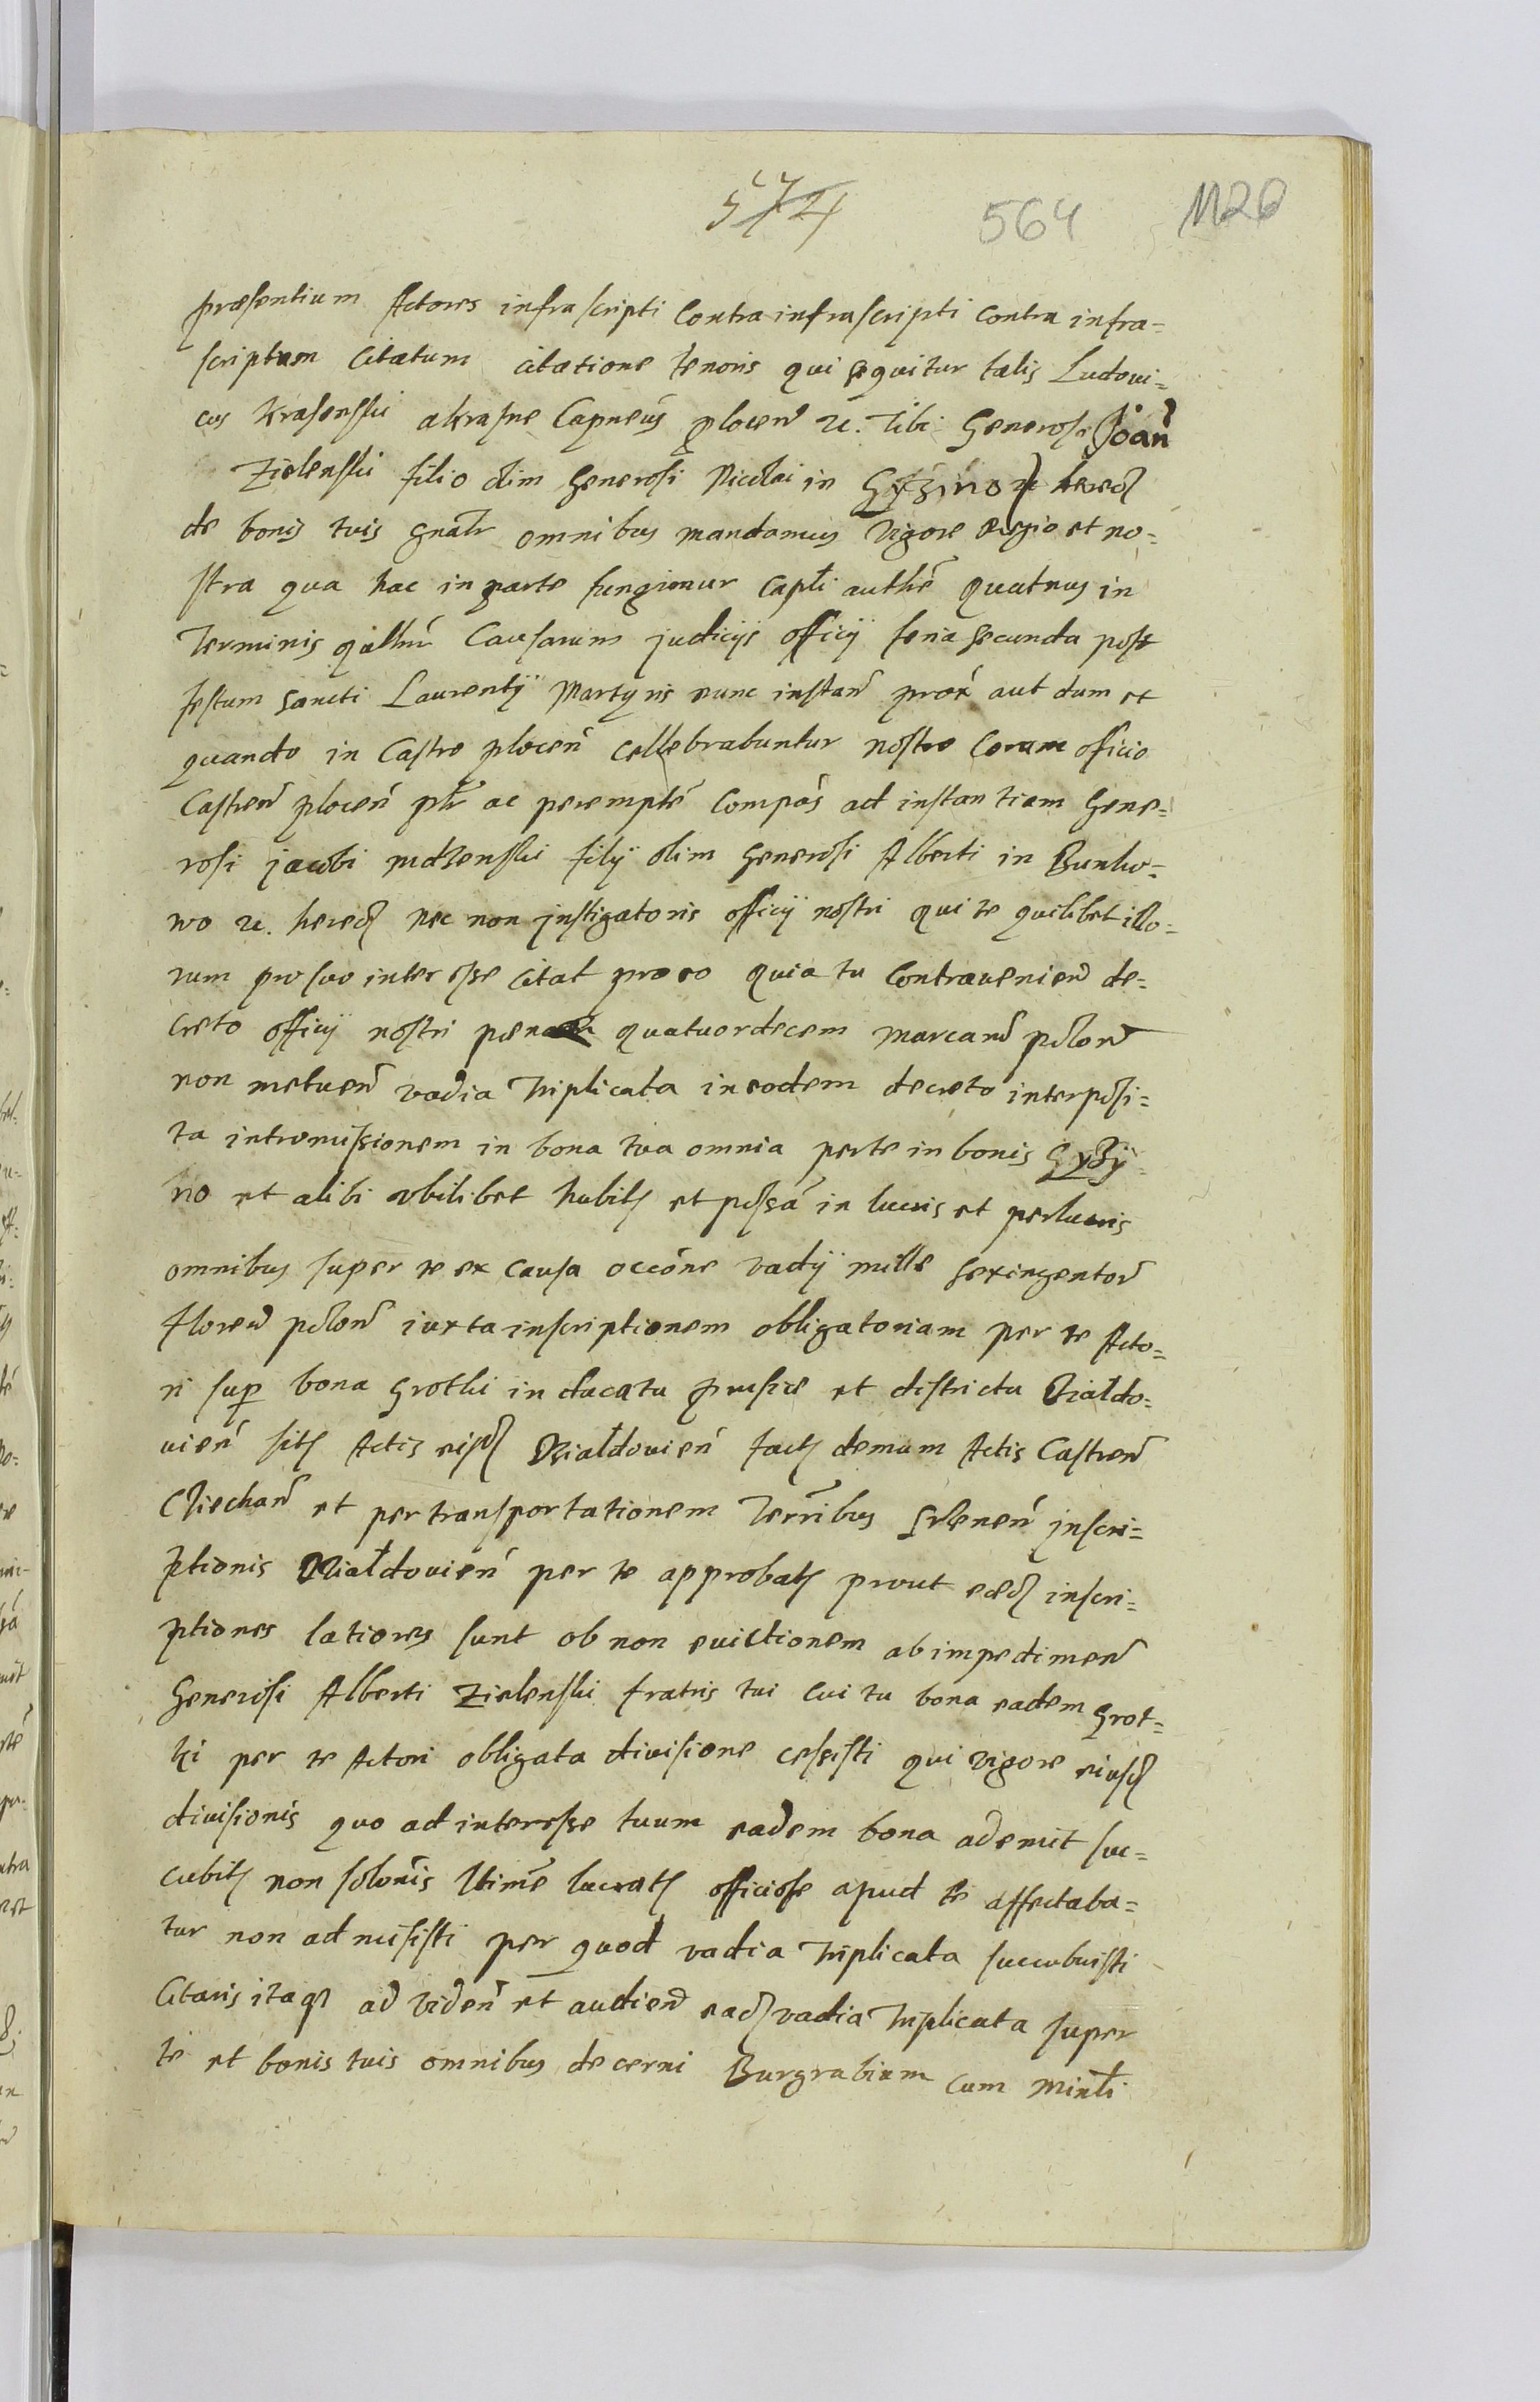 574 564 1120
præsentium Actores infrascripti Contra infrascripti contra infra=
scriptum Citatum citatione tenoris qui sequitur talis Ludoui=
cus Krasenski a Krasne Capneus plocen̄ etc. Tibi Generoso Joan̄
Zielenski filio olim Generosi Nicolai in Gyzino etc hered
de bonis tuis gnalr omnibus mandamus Vigore regio et no=
stra qua hac in parte fungimur Capli authe quatenus in
Terminis Causarum judicijs officij feria secunda post
festum Sancti Laurentij Martyris nunc instan̄ prox aut dum et
quando in Castro plocen̄ cellebrabuntur nostro Coram officio
Castren̄ plocen̄ plr ac perempte Compas ad instantiam Gene=
rosi jacobi filij olim Generosi Alberti in Bunko=
wo etc. hered nec non jnstigatoris officij nostri qui te quilibet illo=
rum pro suo interesse Citat pro eo quia tu Contrauenien̄ de=
creto officij nostri quatuordecem Marcarū polon̄
non metuen̄ vadia triplicata in eodem decreto interposi=
ta intromissionem in bona tua omnia per te in bonis Gyzÿ=
no et alibi vbilibet habit et possa in lucris et perlucris
omnibus super te ex causa occone vadij mille sexingentor̄
floren̄ polon̄ iuxta inscriptionem obligatoriam per te Acto=
ri sup bona Grotki in ducatu prusiæ et districtu Dzialdo=
uien̄ sit Actis eisd Dzialdouien̄ fact demum Actis Castren̄
Ciechan̄ et per transportationem Terribus Srenen̄ jnscri=
ptionis Dzialdouien̄ per te approbat prout eæd inscri=
ptiones latiores sunt ob non euictionem ab impedimen̄
Generosi Alberti Zielenski fratris tui Cui tu bona eadem Grot=
ki per te Actori obligata diuisione cessisti qui vigore eiusd
diuisionis quo ad interesse tuum eadem bona ademit suc=
cubit non lucrat officiose apud te affectaba=
tur non admisisti per quod vadia triplicata succubuisti
Citaris itaq ad viden̄ et audien̄ ead vadia triplicata super
te et bonis tuis omnibus decerni Burgrabium cum Minli